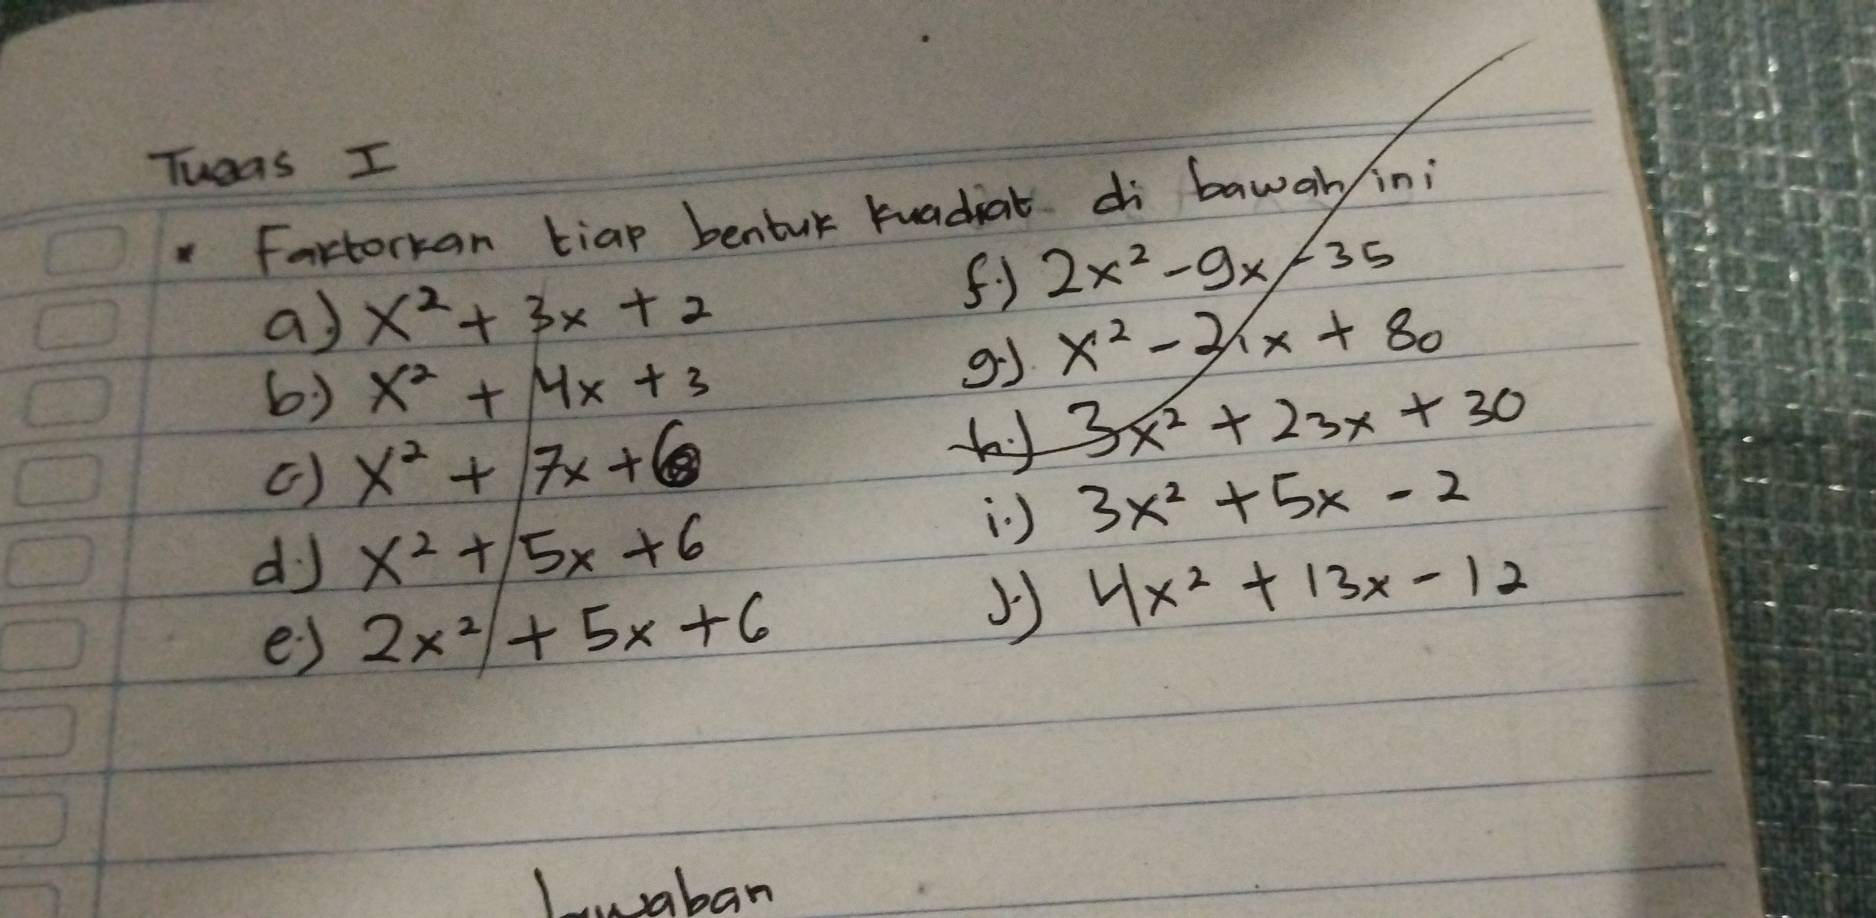 Tugas I
* Faktorkan tiap bentuk kuadrat di bawah ini
a.) x² + 3x + 2
b.) x² + 4x + 3
c.) x² + 7x + 6
d.) x² + 5x + 6
e.) 2x² + 5x + 6
f.) 2x² - 9x - 35
g.) x² - 21x + 80
h.) 3x² + 23x + 30
i.) 3x² + 5x - 2
j.) 4x² + 13x - 12
Jawaban